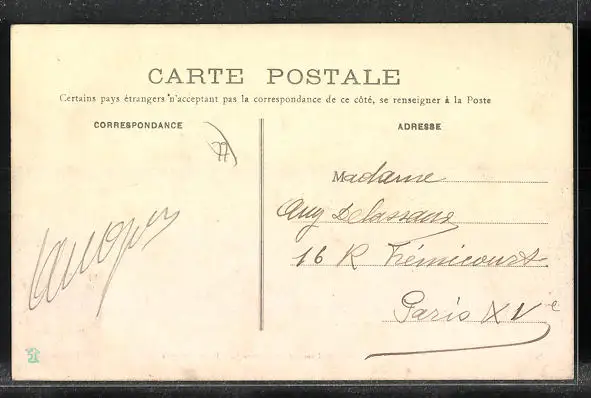 CARTE POSTALE
Certains pays étrangers n'acceptant pas la correspondance de ce côté, se renseigner à la Poste
CORRESPONDANCE
ADRESSE
Madame
Aug Delassaus
16 R Frémicourt
Paris XVe